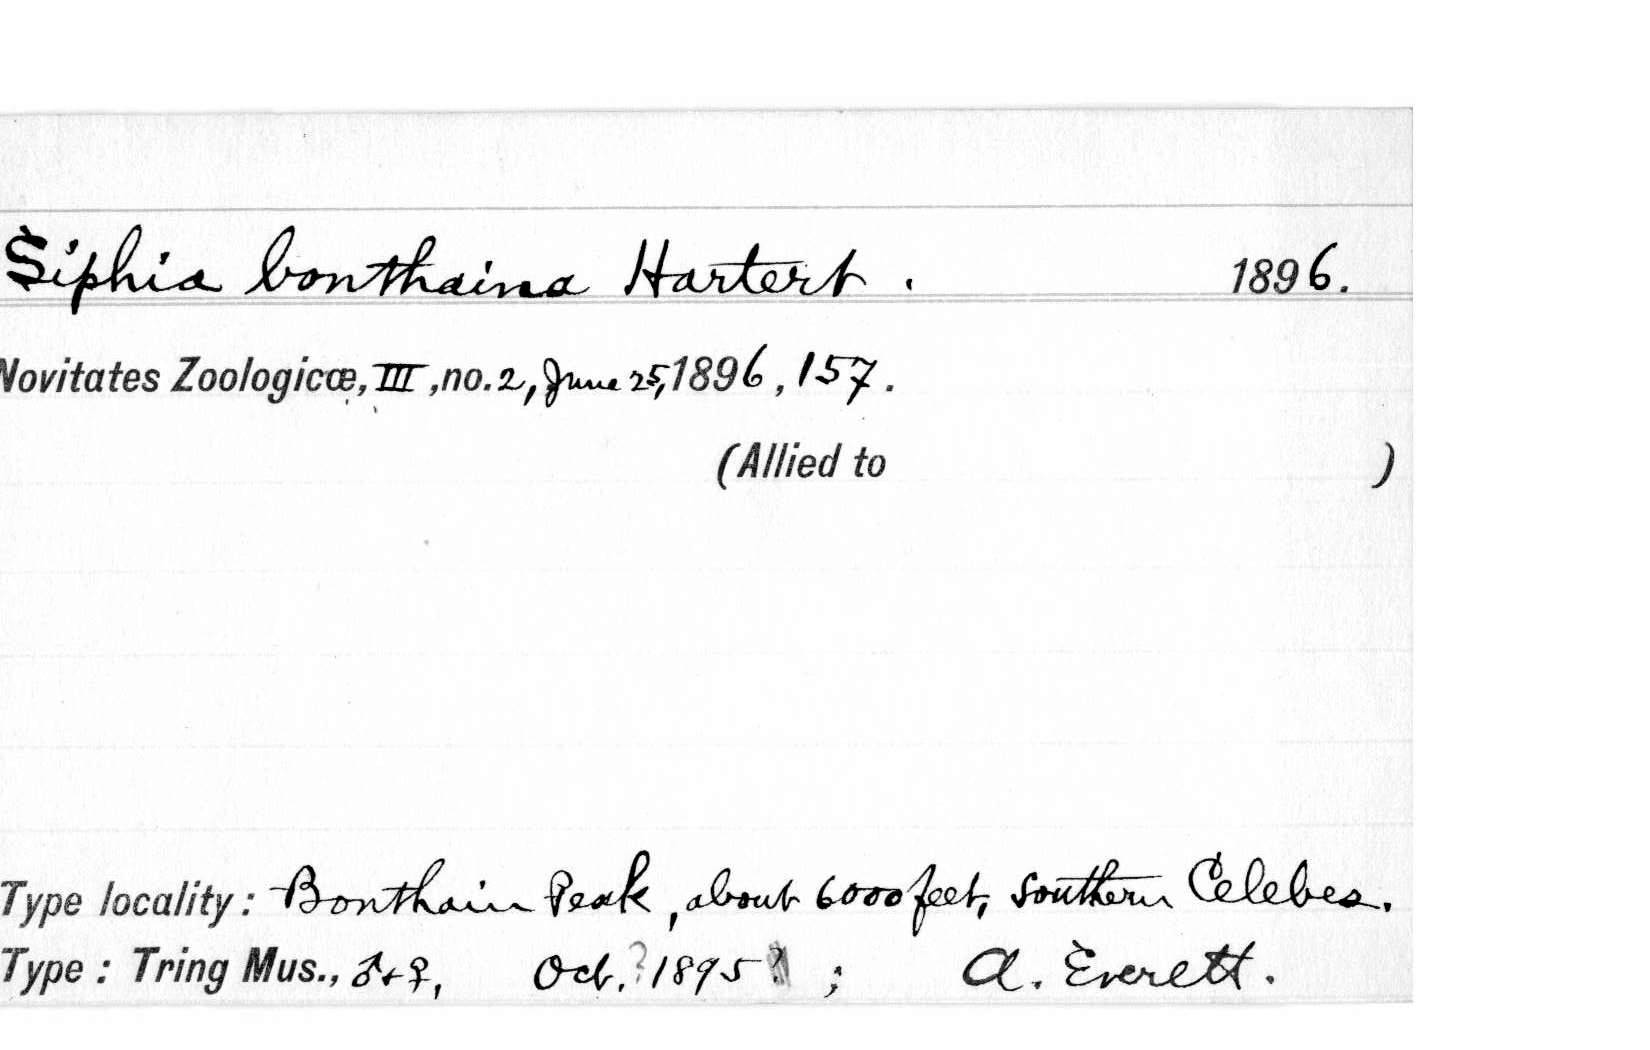 Siphia bonthaina Hartert. 1896.
Novitates Zoologicæ, III, no. 2, June 25, 1896, 157.
(Allied to )
Type locality: Bonthain Peak, about 6000 feet, southern Celebes.
Type: Tring Mus., ♂+♀, Oct.? 1895 ; A. Everett.